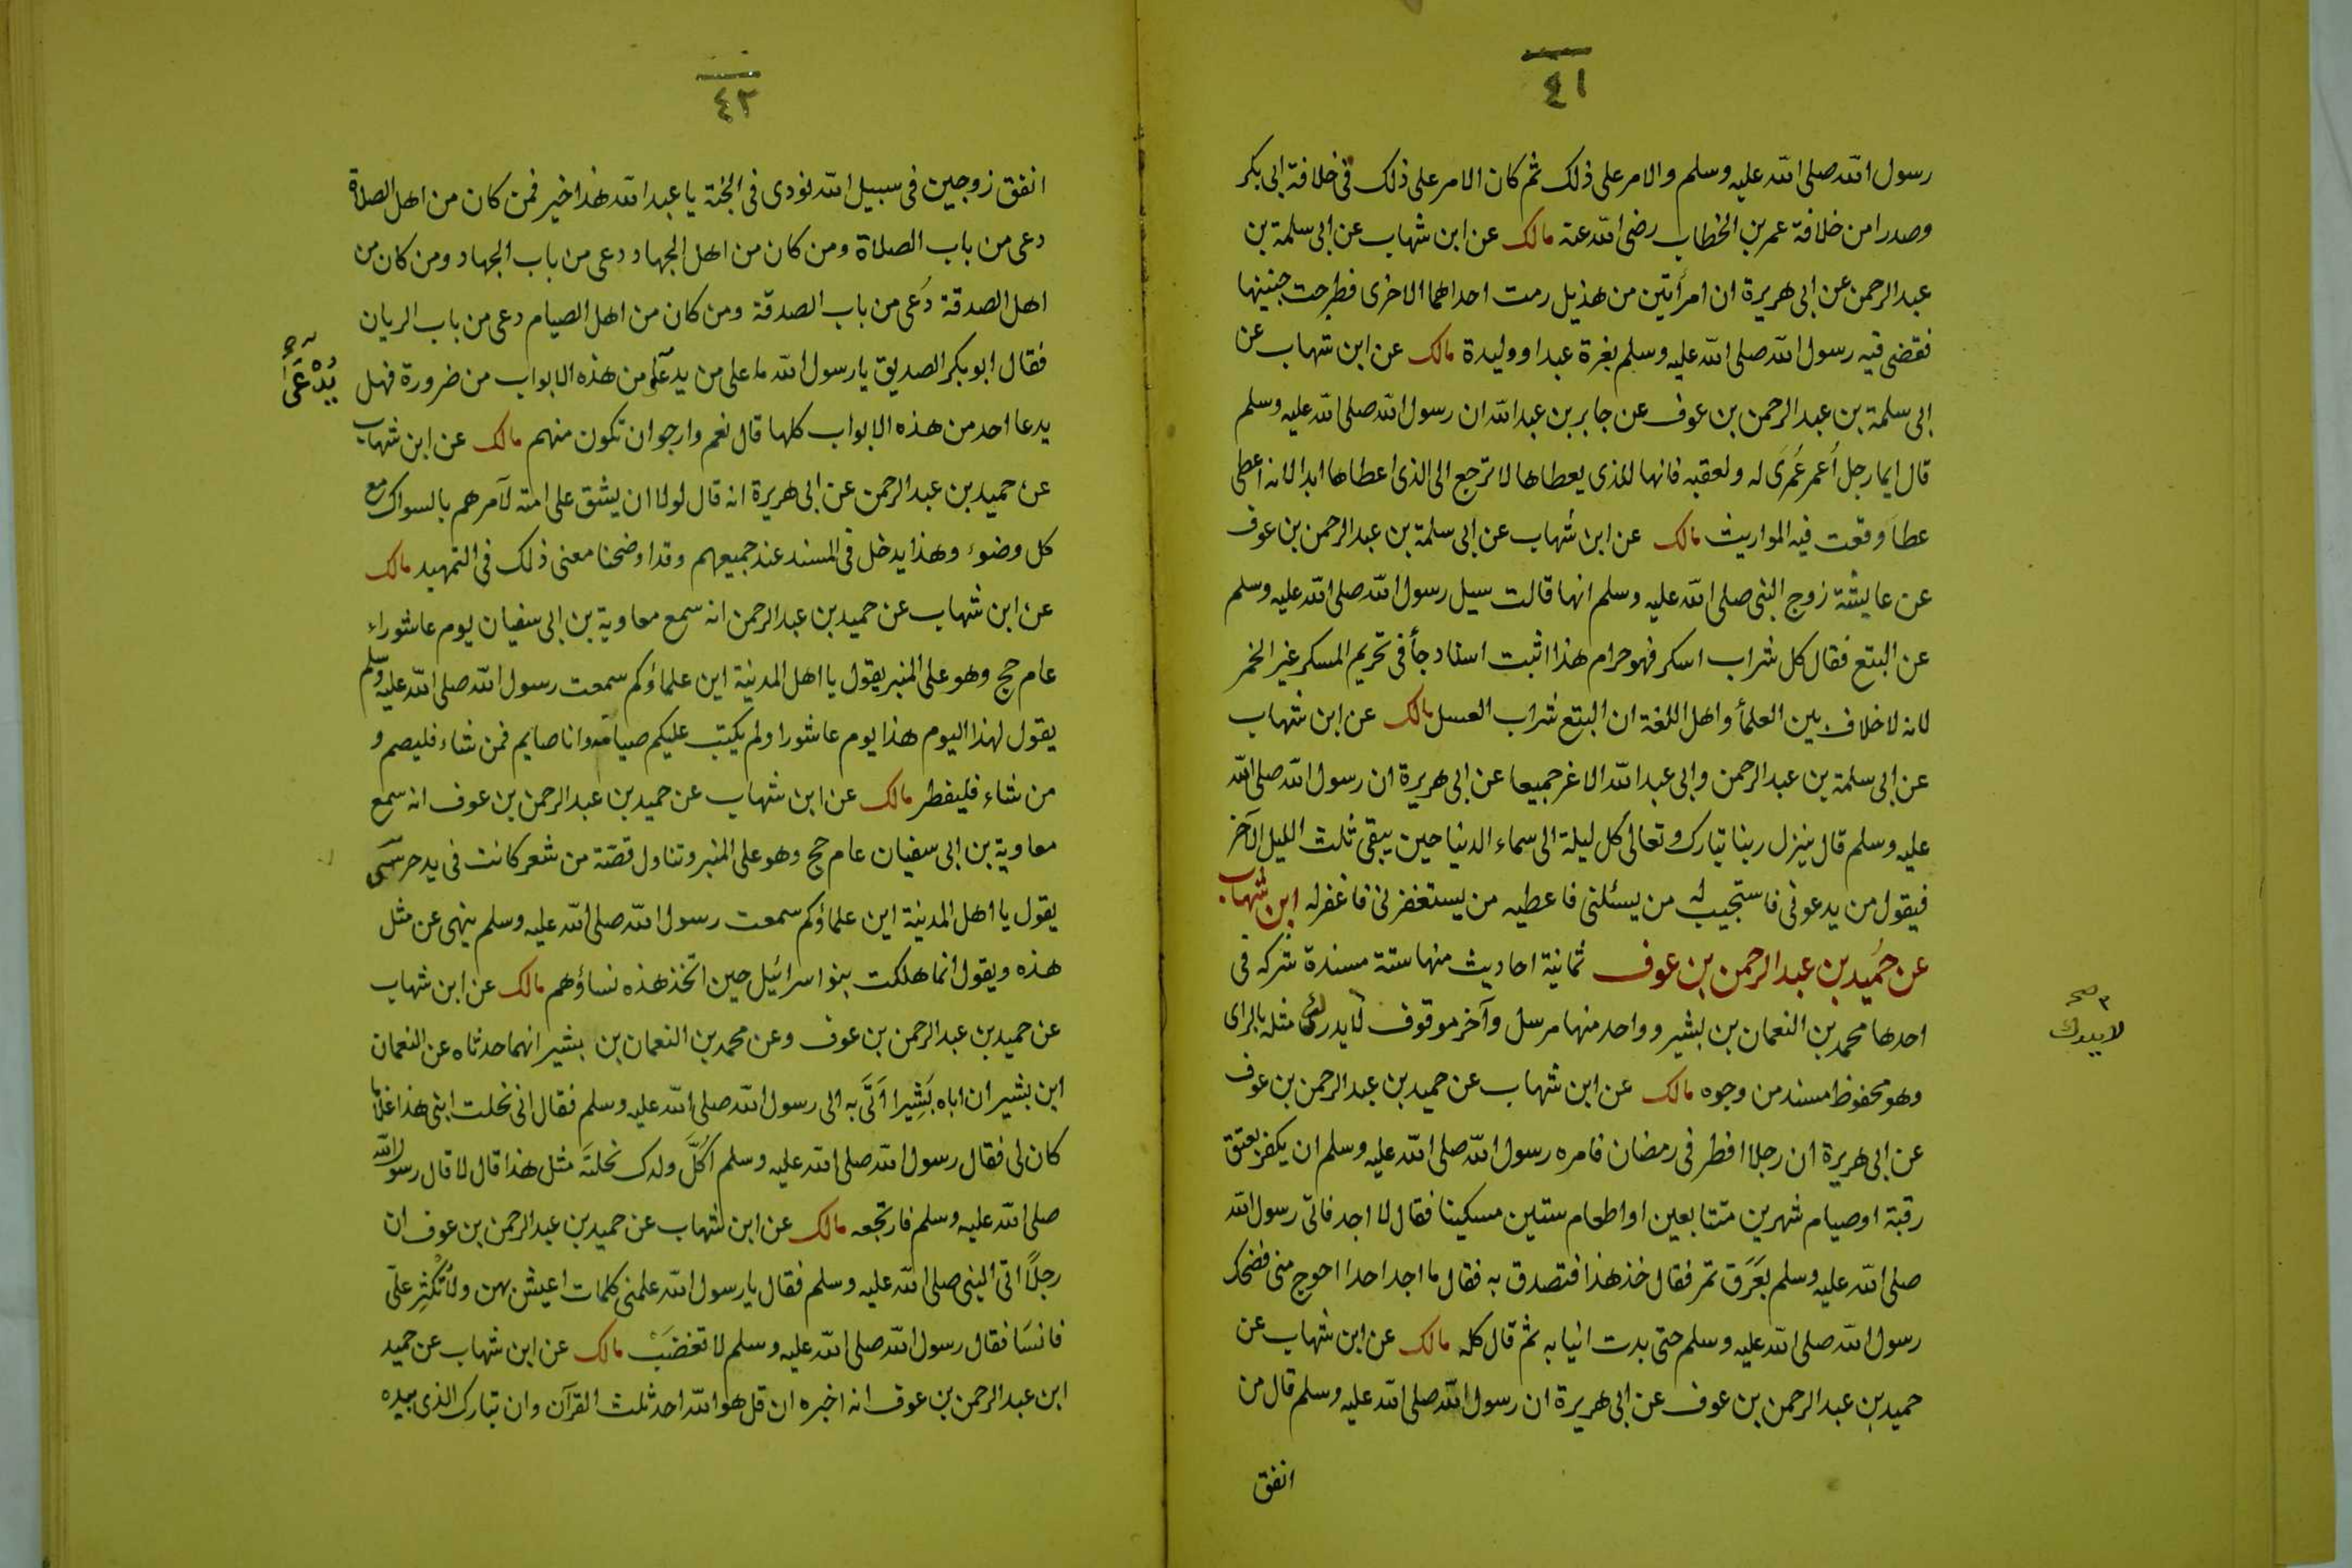 ٤١
رسول الله صلى الله عليه وسلم والامر على ذلك ثم كان الامر على ذلك فى خلافة ابى بكر
وصدرا من خلافة عمر بن الخطاب رضى الله عنه مالك عن ابن شهاب عن ابى سلمة بن
عبد الرحمن عن ابى هريرة ان امرأتين من هذيل رمت احداهما الاخرى فطرحت جنينها
فقضى فيه رسول الله صلى الله عليه وسلم بغرة عبد او وليدة مالك عن ابن شهاب عن
ابى سلمة بن عبد الرحمن بن عوف عن جابر بن عبد الله ان رسول الله صلى الله عليه وسلم
قال ايما رجل اُعمر عُمرَى له ولعقبه فانها للذى يعطاها لا ترجع الى الذى اعطاها ابدا لانه اعطى
عطاَ وقعت فيه المواريث مالك عن ابن شهاب عن ابى سلمة بن عبد الرحمن بن عوف
عن عايشة زوج النبى صلى الله عليه وسلم انها قالت سيل رسول الله صلى الله عليه وسلم
عن البتع فقال كل شراب اسكر فهو حرام هذا اثبت اسناد جأ فى تحريم المسكر غير الخمر
لانه لا خلاف بين العلمأ واهل اللغة ان البتع شراب العسل مالك عن ابن شهاب
عن ابى سلمة بن عبد الرحمن وابى عبد الله الاغر جميعا عن ابى هريرة ان رسول الله صلى الله
عليه وسلم قال ينزل ربنا تبارك وتعالى كل ليلة الى سماء الدنيا حين يبقى ثلث الليل الآخر
فيقول من يدعونى فاستجيب له من يسئلنى فاعطيه من يستغفرنى فاغفر له ابن شهاب
عن حُميد بن عبد الرحمن بن عوف ثمانية احاديث منها ستة مسندة شركه فى
احدها محمد بن النعمان بن بشير وواحد منها مرسل وآخر موقوف لا يدرك مثله بالراى
لا يدرك صح
وهو محفوظ مسند من وجوه مالك عن ابن شهاب عن حميد بن عبد الرحمن بن عوف
عن ابى هريرة ان رجلا افطر فى رمضان فامره رسول الله صلى الله عليه وسلم ان يكفر بعتق
رقبة او صيام شهرين متتابعين او اطعام ستين مسكينا فقال لا اجد فاتى رسول الله
صلى الله عليه وسلم بعَرَق تمر فقال خذ هذا فتصدق به فقال ما اجد احدا احوج منى فضحك
رسول الله صلى الله عليه وسلم حتى بدت انيابه ثم قال كله مالك عن ابن شهاب عن
حميد بن عبد الرحمن بن عوف عن ابى هريرة ان رسول الله صلى الله عليه وسلم قال من
انفق
٤٢
انفق زوجين فى سبيل الله نودى فى الجنة يا عبد الله هذا خير فمن كان من اهل الصلاة
دعى من باب الصلاة ومن كان من اهل الجهاد دعى من باب الجهاد ومن كان من
اهل الصدقة دُعى من باب الصدقة ومن كان من اهل الصيام دعى من باب الريان
فقال ابو بكر الصديق يا رسول الله ما على من يدعا من هذه الابواب من ضرورة فهل
يُدْعَى
يدعا احد من هذه الابواب كلها قال نعم وارجو ان تكون منهم مالك عن ابن شهاب
عن حميد بن عبد الرحمن عن ابى هريرة انه قال لولا ان يشق على امته لآمرهم بالسواك مع
كل وضوء وهذا يدخل فى المسند عند جميعهم وقد اوضحنا معنى ذلك فى التمهيد مالك
عن ابن شهاب عن حميد بن عبد الرحمن انه سمع معاوية بن ابى سفيان يوم عاشوراء
عام حج وهو على المنبر يقول يا اهل المدينة اين علماؤكم سمعت رسول الله صلى الله عليه وسلم
يقول لهذا اليوم هذا يوم عاشورا ولم يكتب عليكم صيامه وانا صايم فمن شاء فليصم و
من شاء فليفطر مالك عن ابن شهاب عن حميد بن عبد الرحمن بن عوف انه سمع
معاوية بن ابى سفيان عام حج وهو على المنبر وتناول قصّة من شعر كانت فى يد حرسَى
يقول يا اهل المدينة اين علماؤكم سمعت رسول الله صلى الله عليه وسلم ينهى عن مثل
هذه ويقول انما هلكت بنوا اسرائيل حين اتخذ هذه نساؤهم مالك عن ابن شهاب
عن حميد بن عبد الرحمن بن عوف وعن محمد بن النعمان بن بشير انهما حدثاه عن النعمان
ابن بشير ان اباه بَشِيرا اَتَى به الى رسول الله صلى الله عليه وسلم فقال انى نحلت ابنى هذا غلاما
كان لى فقال رسول الله صلى الله عليه وسلم اكُلَّ ولدك نحلتَه مثل هذا قال لا قال رسول الله
صلى الله عليه وسلم فارتجعه مالك عن ابن شهاب عن حميد بن عبد الرحمن بن عوف ان
رجلًا اتى النبى صلى الله عليه وسلم فقال يا رسول الله علمنى كلمات اعيش بهن ولا تُكْثِر علىّ
فانسَا فقال رسول الله صلى الله عليه وسلم لا تغضبْ مالك عن ابن شهاب عن حميد
ابن عبد الرحمن بن عوف انه اخبره ان قل هو الله احد ثلث القرآن وان تبارك الذى بيده